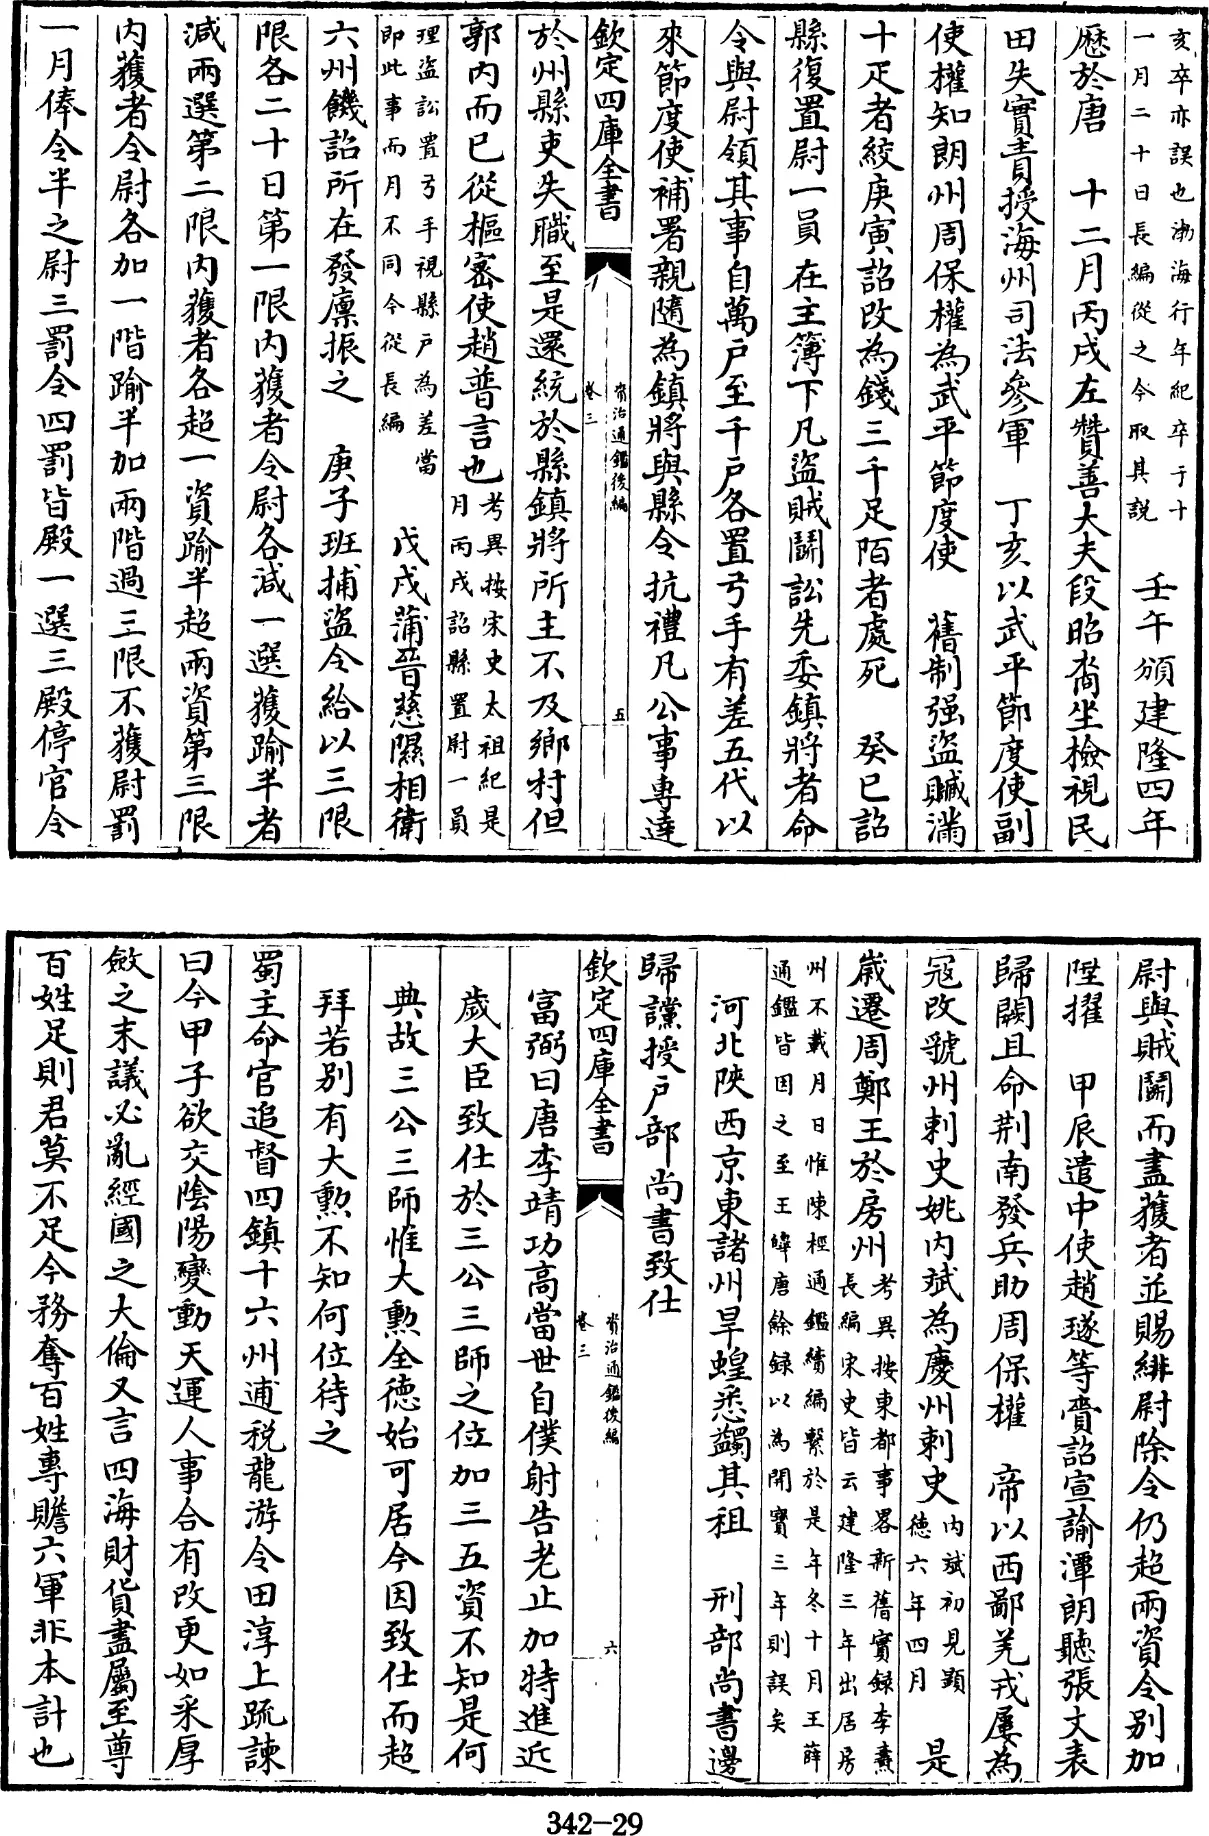 亥卒亦誤也渤海行年紀卒于十
一月二十日長編從之今取其說
壬午頒建隆四年
厯於唐　十二月丙戌左贊善大夫段昭裔坐檢視民
田失實責授海州司法參軍　丁亥以武平節度使副
使權知朗州周保權為武平節度使　舊制强盜贓滿
十疋者絞庚寅詔改為錢三千足陌者處死　癸巳詔
縣復置尉一員在主簿下凡盜賊鬭訟先委鎮將者命
令與尉領其事自萬戶至千戶各置弓手有差五代以
來節度使補署親隨為鎮將與縣令抗禮凡公事專達
欽定四庫全書
資治通鑑後編
卷三
五
於州縣吏失職至是還統於縣鎮將所主不及鄉村但
郭內而已從樞密使趙普言也
考異按宋史太祖紀是
月丙戌詔縣置尉一員
理盜訟置弓手視縣戶為差當
即此事而月不同今從長編
戊戌蒲晉慈隰相衛
六州饑詔所在發廩振之　庚子班捕盜令給以三限
限各二十日第一限內獲者令尉各減一選獲踰半者
減兩選第二限內獲者各超一資踰半超兩資第三限
內獲者令尉各加一階踰半加兩階過三限不獲尉罰
一月俸令半之尉三罰令四罰皆殿一選三殿停官令
尉與賊鬭而盡獲者並賜緋尉除令仍超兩資令別加
陞擢　甲辰遣中使趙璲等賫詔宣諭潭朗聽張文表
歸闕且命荆南發兵助周保權　帝以西鄙羌戎屢為
冦改號州刺史姚內斌為慶州刺史
內斌初見顯
徳六年四月
是
嵗遷周鄭王於房州
考異按東都事畧新舊實録李燾
長編宋史皆云建隆三年出居房
州不載月日惟陳桱通鑑續編繫於是年冬十月王薛
通鑑皆因之至王皡唐餘録以為開寶三年則誤矣
河北陝西京東諸州旱蝗悉蠲其租　刑部尚書邊
歸讜授戶部尚書致仕
欽定四庫全書
資治通鑑後編
卷三
六
富弼曰唐李靖功高當世自僕射告老止加特進近
歲大臣致仕於三公三師之位加三五資不知是何
典故三公三師惟大勲全徳始可居今因致仕而超
拜若別有大勲不知何位待之
蜀主命官追督四鎮十六州逋稅龍游令田淳上疏諫
曰今甲子欲交陰陽變動天運人事合有改更如采厚
斂之末議必亂經國之大倫又言四海財貨盡屬至尊
百姓足則君莫不足今務奪百姓專贍六軍非本計也
342-29